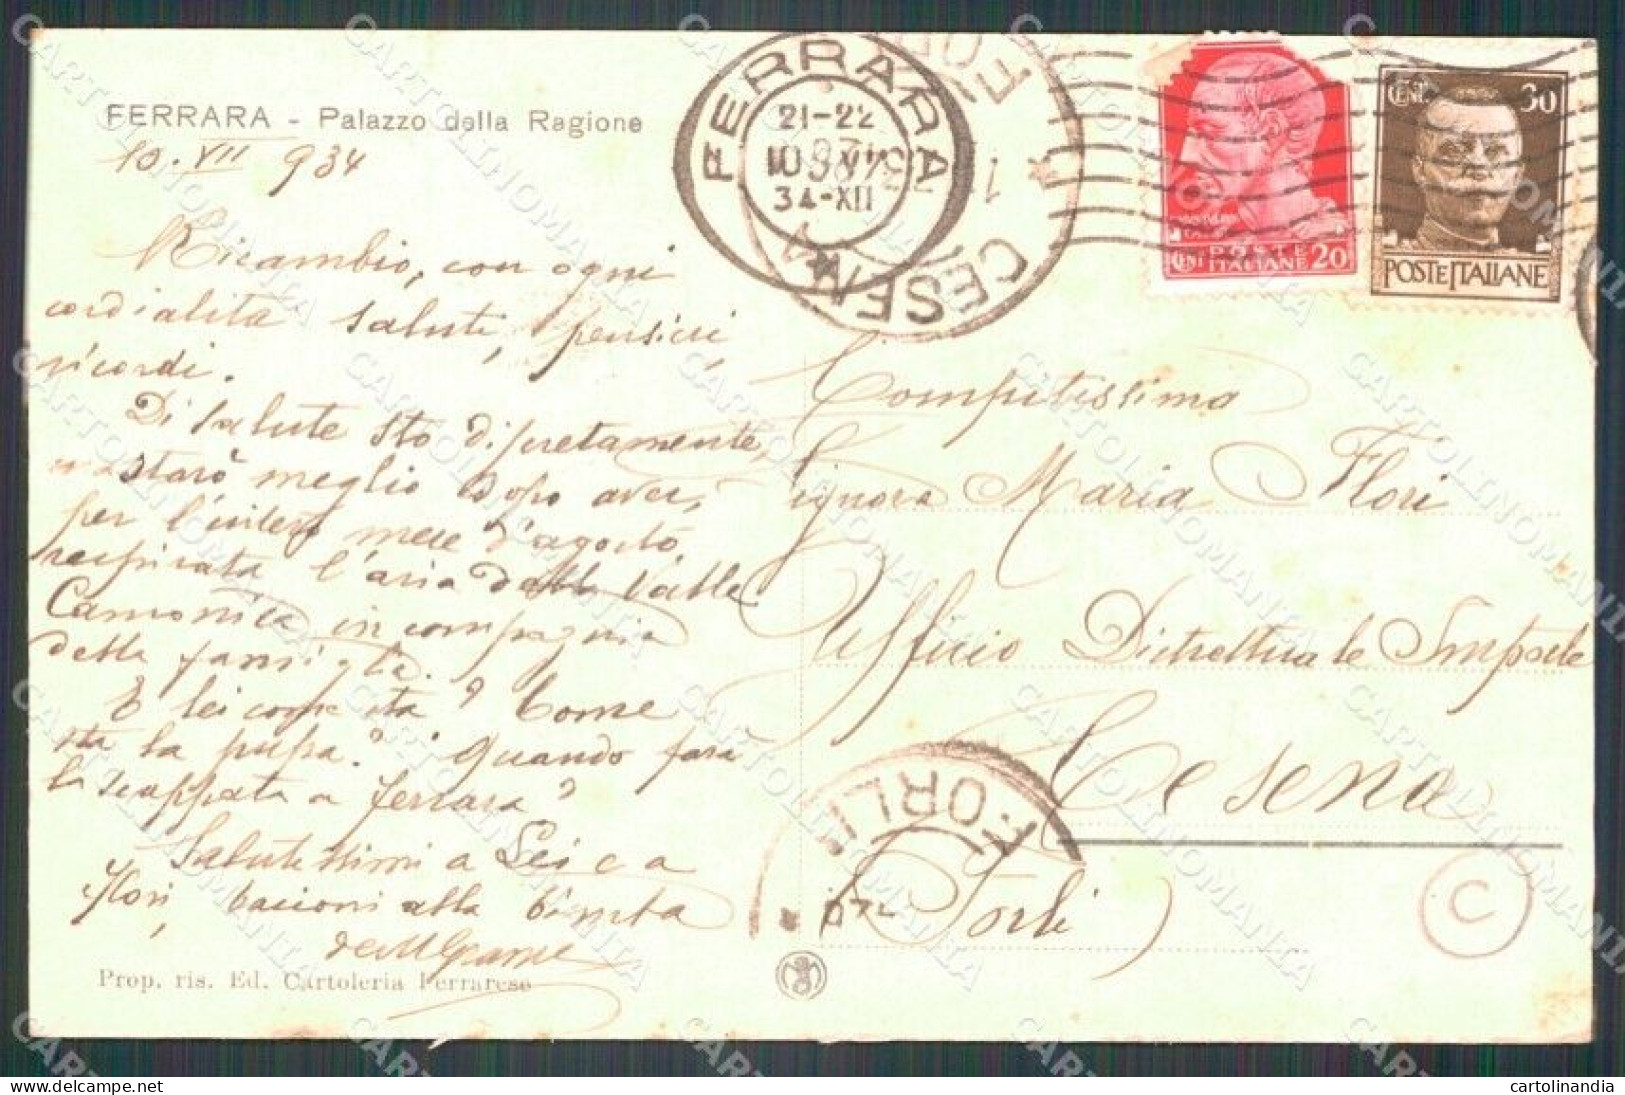 FERRARA - Palazzo della Ragione
10. VII 934
Ricambio, con ogni
cordialità saluti, pensieri,
ricordi.
Di salute sto discretamente,
starò meglio dopo aver,
per l'intero mese d'agosto,
respirata l'aria della Valle
Camonica in compagnia
della famiglia.
E lei cosa fa? Come
sta la pupa? Quando farà
la scappata a Ferrara?
Salutissimi a Lei e a
Flori, bacioni alla bimba
Prop. ris. Ed. Cartoleria Ferrarese
FERRARA
21-22
10 VII
34-XII
CESENA
POSTE
ITALIANE
CENT 20
CENT. 30
POSTE ITALIANE
Compitissima
Signora Maria Flori
Ufficio Distrettuale Imposte
Cesena
FORLI
Forlì
C
CARTOLINOMANIA
cartolinandia